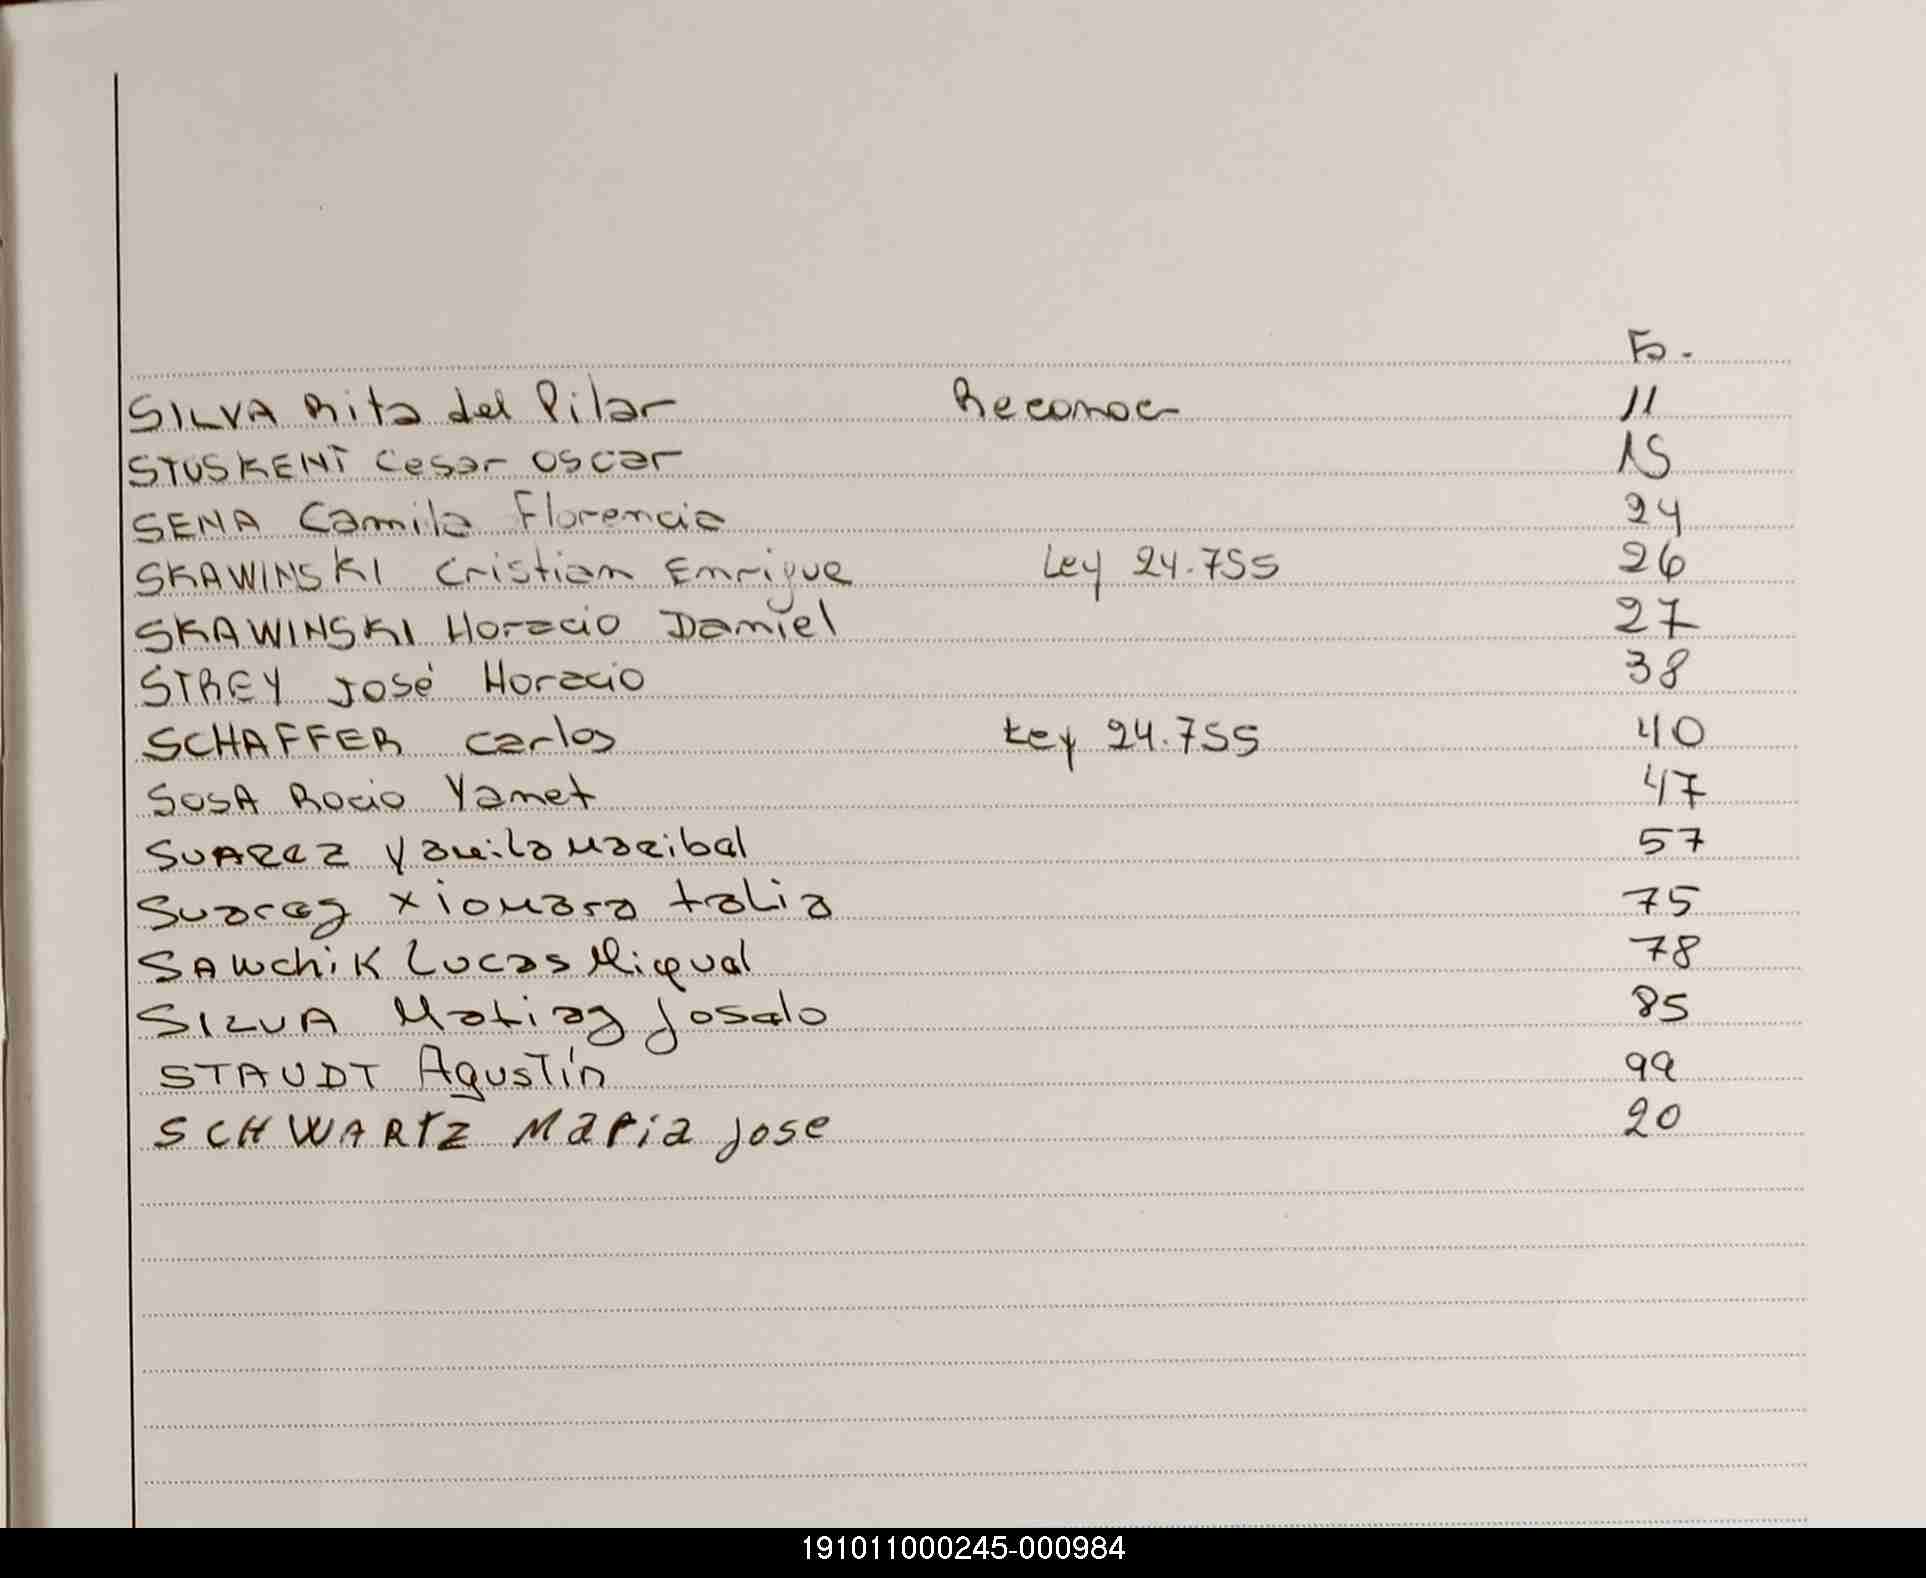 Fo.
SILVA Rita del Pilar Reconoc 11
STUSKENT Cesar Oscar 15
SENA Camila Florencia 24
SKAWINSKI Cristian Enrique Ley 24.755 26
SKAWINSKI Horacio Daniel 27
STREY José Horacio 38
SCHAFFER Carlos Ley 24.755 40
SOSA Rocio Yanet 47
SUAREZ Yamila Maribel 57
Suarez Xiomara talia 75
SAWchiK Lucas Miguel 78
SILVA Matias 85
STAUDT Agustín 99
SCHWARTZ Maria Jose 20
191011000245-000984